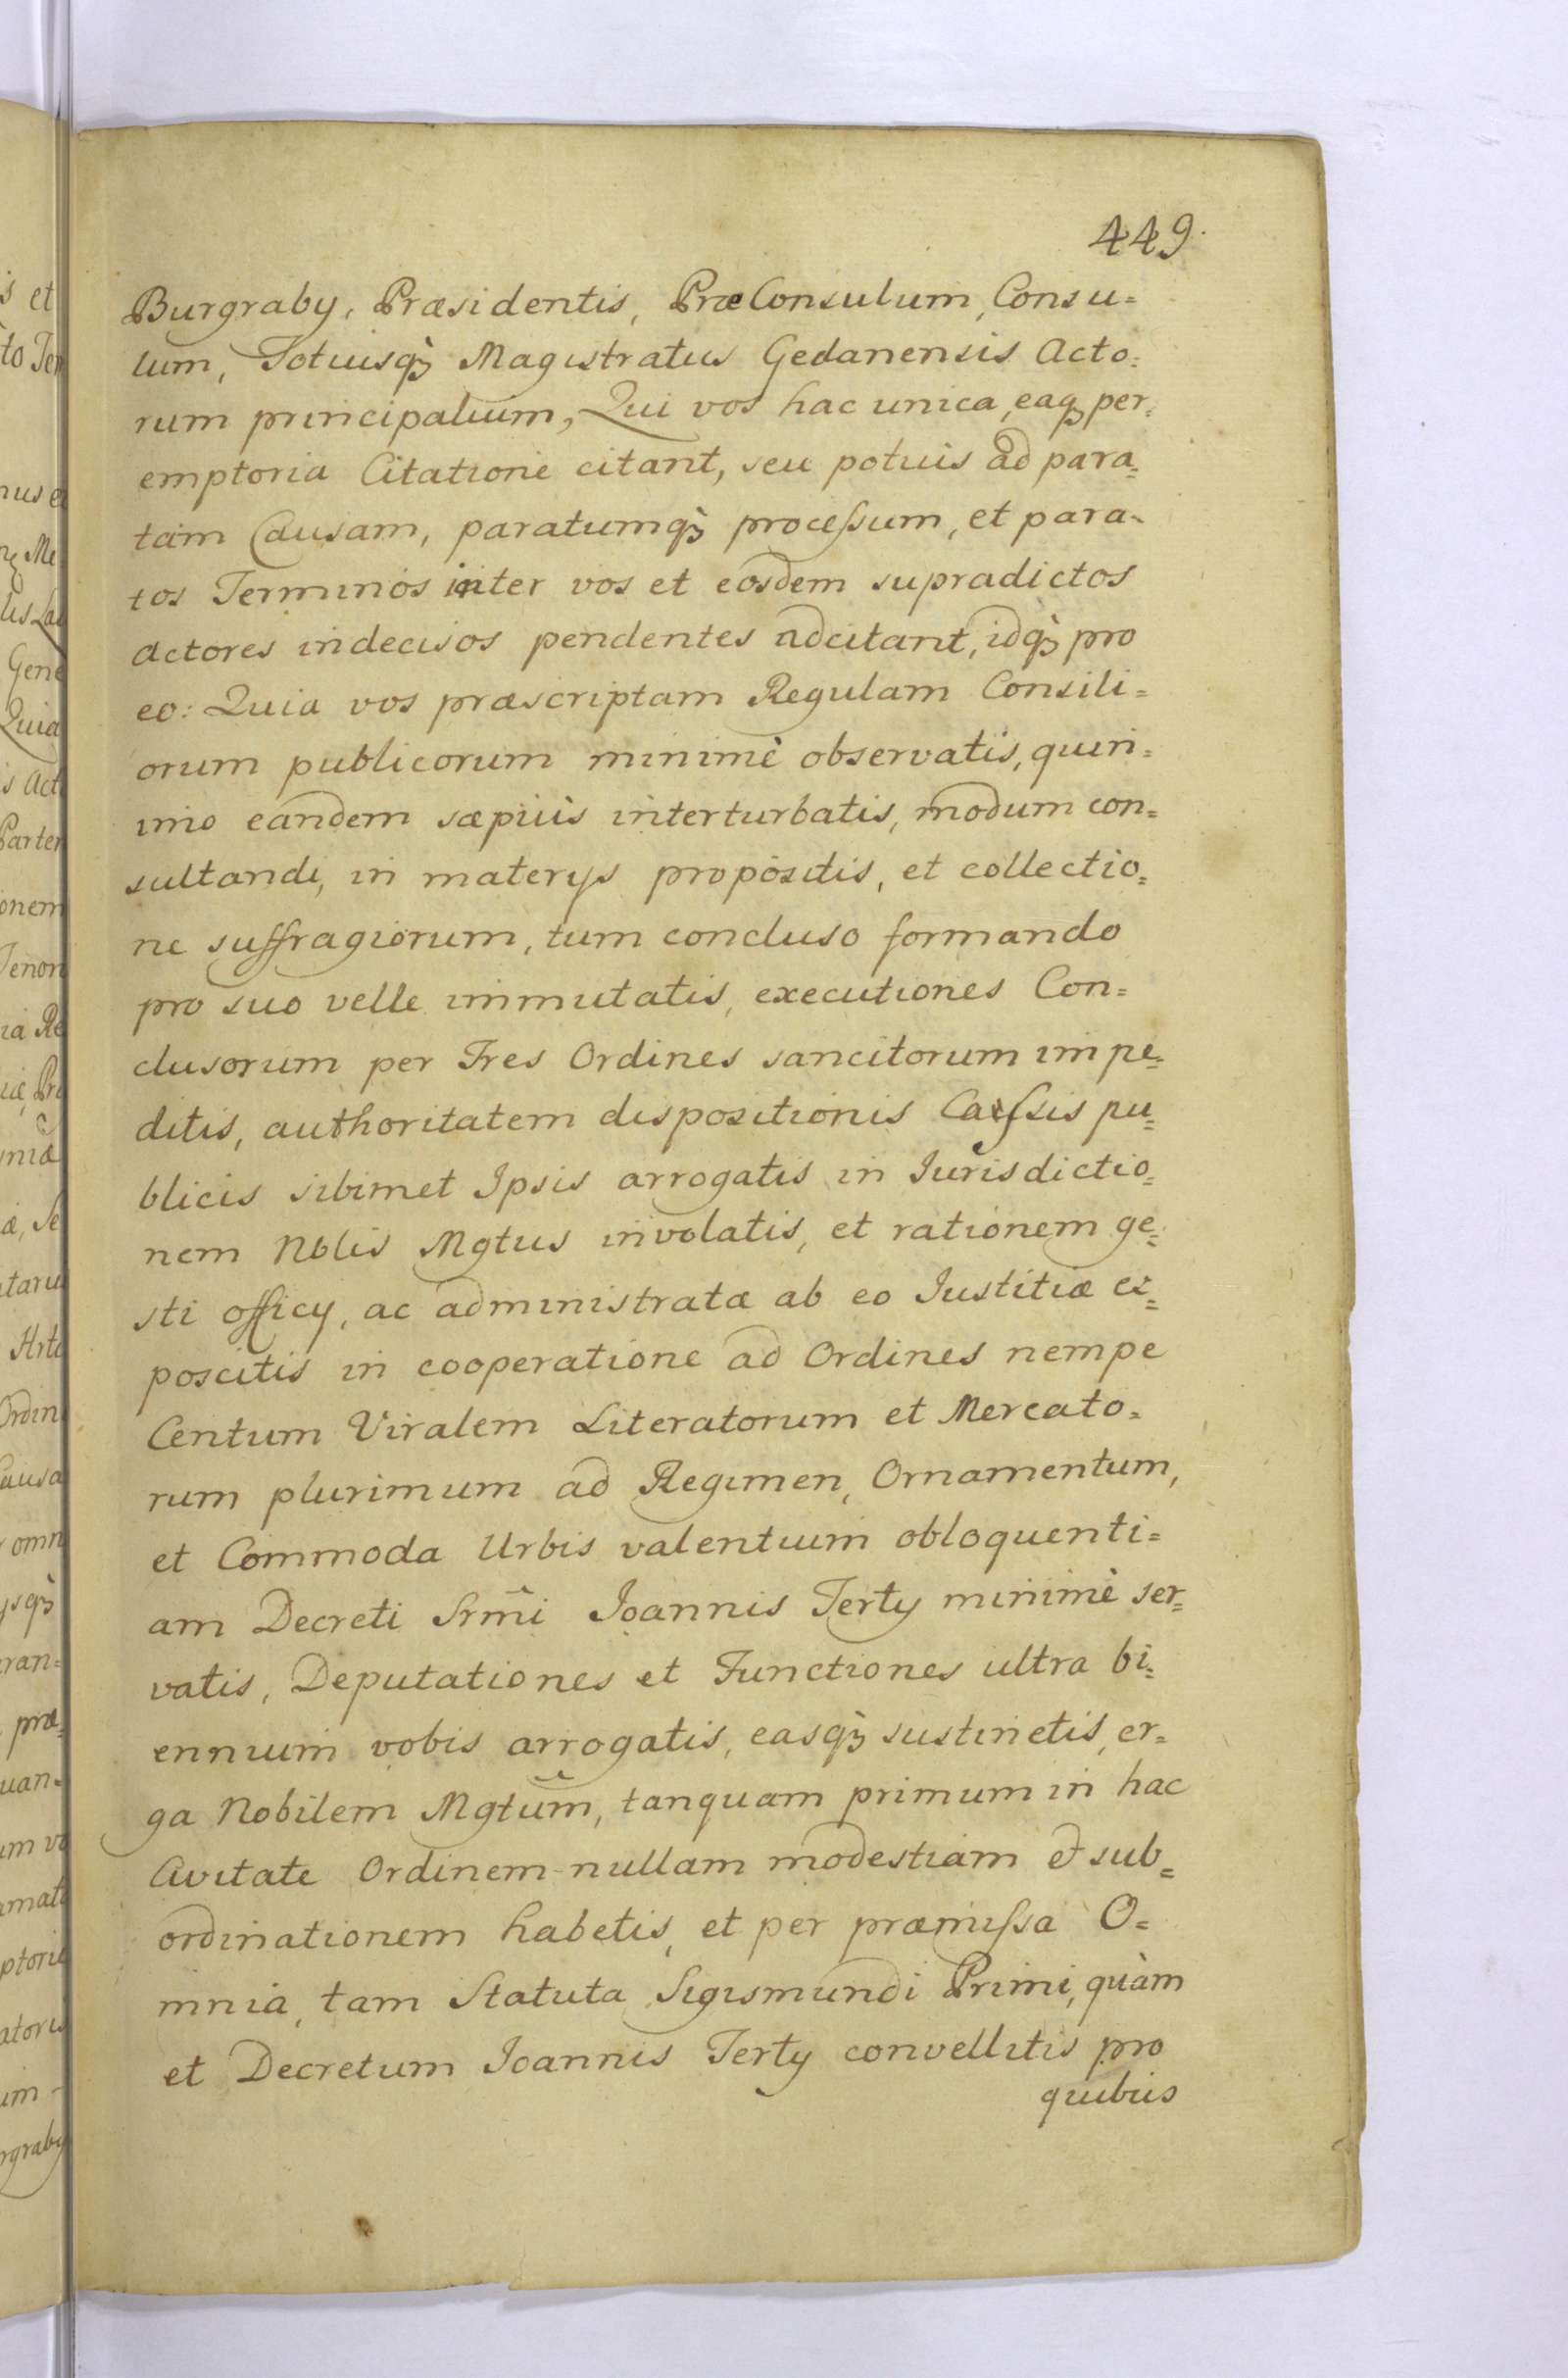 449.
Burgraby, Præsidentis, PræConsulum, Consu=
lum, Totiusq́ Magistratus Gedanensis Acto=
rum principalium, Qui vos hac unica, eaq per=
emptoria Citatione citant, seu potius ad para=
tam Causam, paratumq́ processum, et para-
tos Terminos inter vos et eosdem supradictos
Actores indecisos pendentes adcitant, idq́ pro
eo: Quia vos præscriptam Regulam Consili=
orum publicorum minimè observatis, quin=
imo eandem sæpiùs interturbatis, modum con=
sultandi, in materys propositis, et collectio=
ne suffragiorum, tum concluso formando
pro suo velle immutatis, executiones Con=
clusorum per Tres Ordines sancitorum impe=
ditis, authoritatem dispositionis Cassis pu=
blicis sibimet Ipsis arrogatis in Jurisdictio=
nem Nblis Mgtus involatis, et rationem ge=
sti officy, ac administratæ ab eo Justitiæ ex=
poscitis in cooperatione ad Ordines nempe
Centum Viralem Literatorum et Mercato=
rum plurimum ad Regimen, Ornamentum,
et Commoda Urbis valentium obloquenti=
am Decreti Srm̃i Joannis Terty minimè ser=
vatis, Deputationes et Functiones ultra bi=
ennium vobis arrogatis, easq́ sustinetis, er=
ga Nobilem Mgtum̃, tanquam primum in hac
Civitate Ordinem nullam modestiam et sub=
ordinationem habetis, et per præmissa O=
mnia, tam Statuta Sigismundi Primi, quàm
et Decretum Joannis Terty convellitis pro
quibus
s et
to Ter
nus e
Me
lis La
Gene
Quia
is Act
Parten
onem
Tenor
ia Re
iæ, Pr
niæ
æ, Se
taru
Ordin
Causa
omn
ysq́
ran=
præ=
uan=
um vo
amat
ptoria
atoris
im -
rgraby